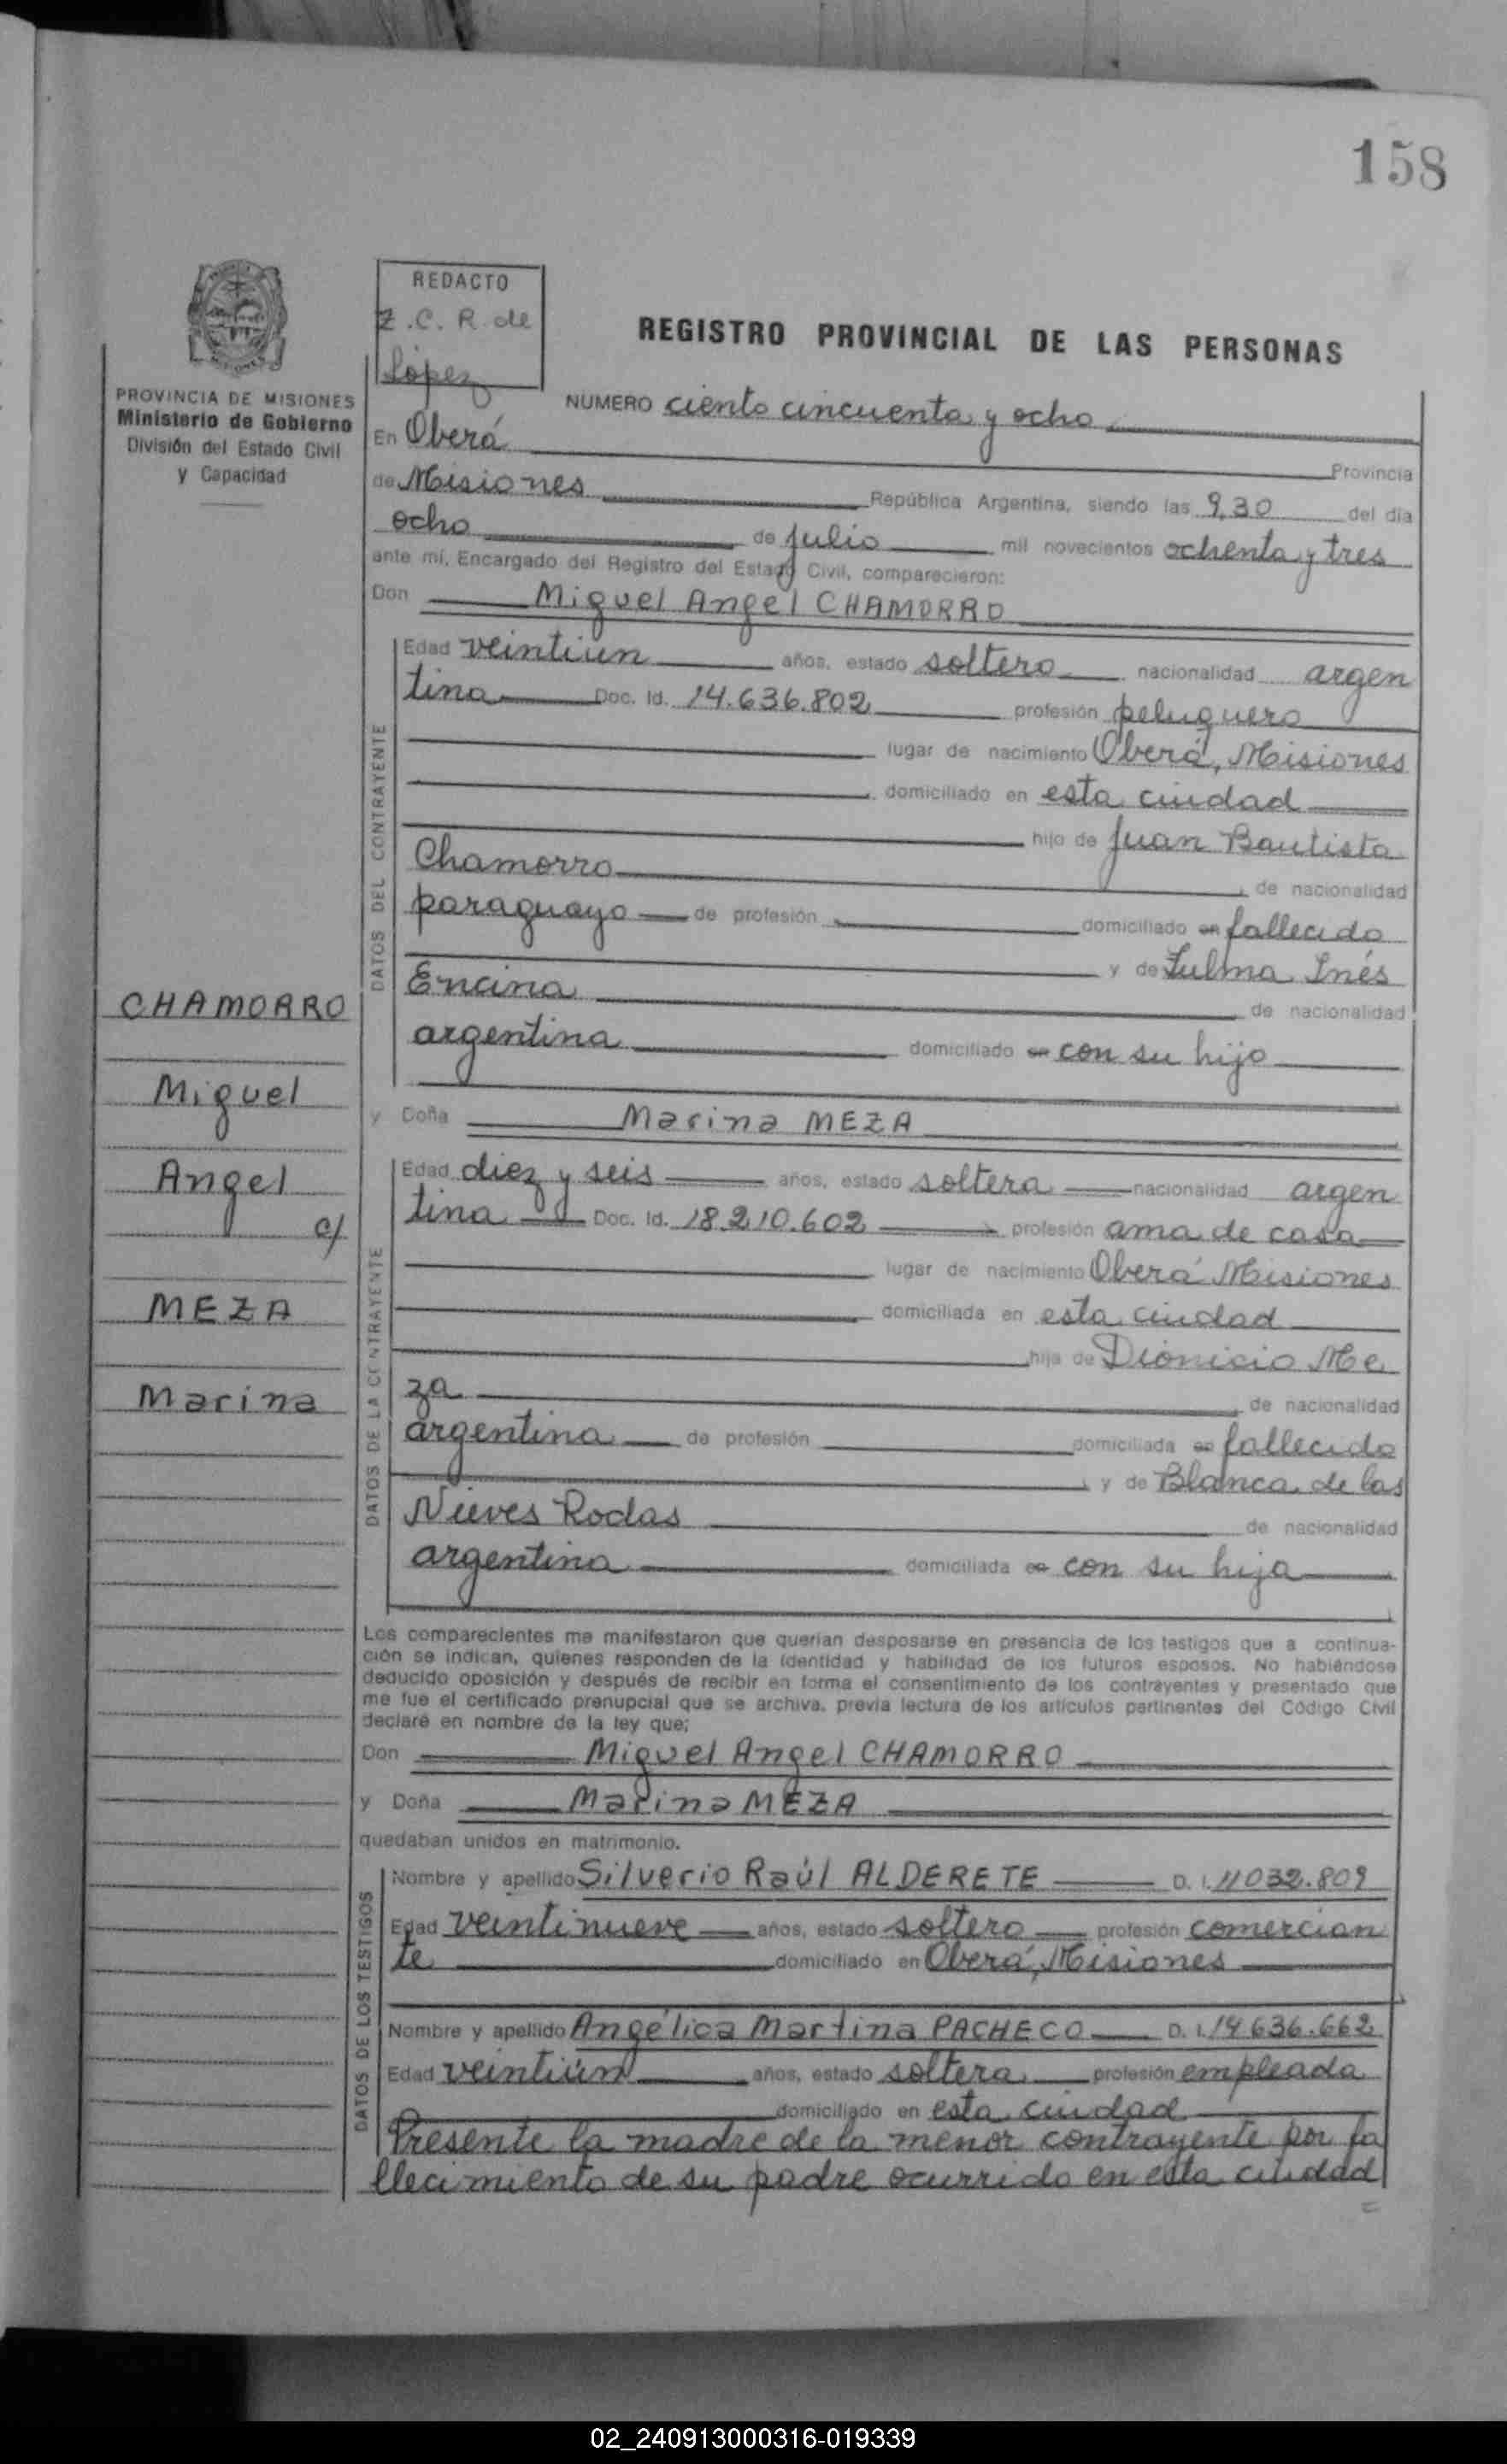 158
REDACTO
Z.C.R. de
López
REGISTRO PROVINCIAL DE LAS PERSONAS
PROVINCIA DE MISIONES
Ministerio de Gobierno
División del Estado Civil
y Capacidad
NUMERO ciento cincuenta y ocho
En Oberá Provincia
de Misiones República Argentina, siendo las 9,30 del día
ocho de julio mil novecientos ochenta y tres
ante mí, Encargado del Registro del Estado Civil, comparecieron:
Don Miguel Angel CHAMORRO
DATOS DEL CONTRAYENTE
Edad veintiun años, estado soltero nacionalidad argen
tina Doc. Id. 14.636.802 profesión peluquero
lugar de nacimiento Oberá, Misiones
domiciliado en esta ciudad
hijo de Juan Bautista
Chamorro de nacionalidad
paraguayo de profesión domiciliado en fallecido
y de Zulma Inés
Encina de nacionalidad
argentina domiciliado en con su hijo
CHAMORRO
Miguel
Angel
c/
MEZA
Marina
y Doña Marina MEZA
DATOS DE LA CONTRAYENTE
Edad diez y seis años, estado soltera nacionalidad argen
tina Doc. Id. 18.210.602 profesión ama de casa
lugar de nacimiento Oberá Misiones
domiciliada en esta ciudad
hija de Dionicio Me
za de nacionalidad
argentina de profesión domiciliada en fallecido
y de Blanca de las
Nieves Rodas de nacionalidad
argentina domiciliada en con su hija
Los comparecientes me manifestaron que querían desposarse en presencia de los testigos que a continua-
ción se indican, quienes responden de la identidad y habilidad de los futuros esposos. No habiéndose
deducido oposición y después de recibir en forma el consentimiento de los contrayentes y presentado que
me fue el certificado prenupcial que se archiva, previa lectura de los artículos pertinentes del Código Civil
declaré en nombre de la ley que;
Don Miguel Angel CHAMORRO
y Doña Marina MEZA
quedaban unidos en matrimonio.
DATOS DE LOS TESTIGOS
Nombre y apellido Silverio Raúl ALDERETE D. I. 11032.809
Edad veintinueve años, estado soltero profesión comercian
te domiciliado en Oberá, Misiones
Nombre y apellido Angélica Martina PACHECO D. I. 14636.662
Edad veintiún años, estado soltera profesión empleada
domiciliado en esta ciudad
Presente la madre de la menor contrayente por fa
llecimiento de su padre ocurrido en esta ciudad
02_240913000316-019339